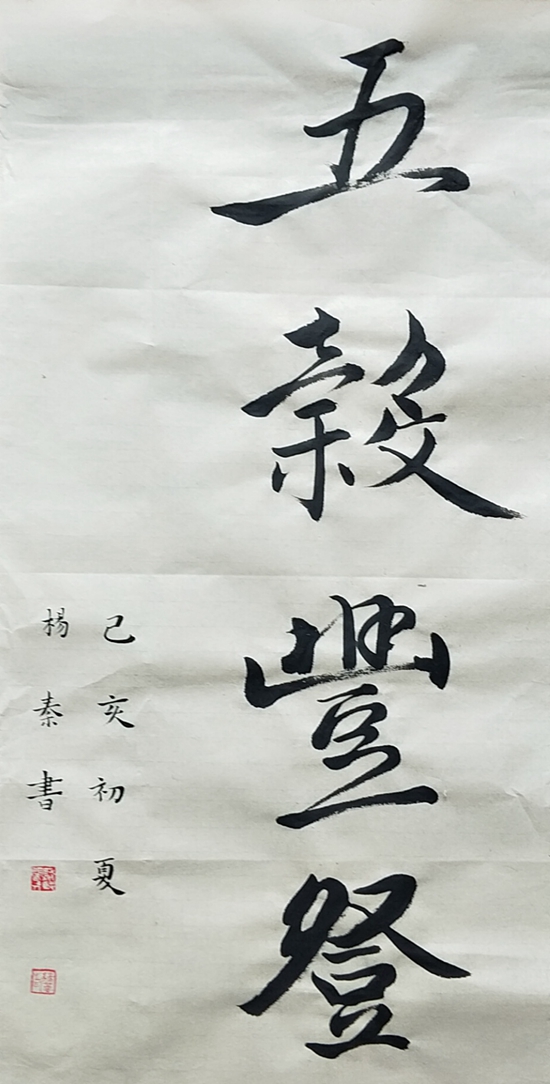 五穀豐登
己亥初夏
楊秦書